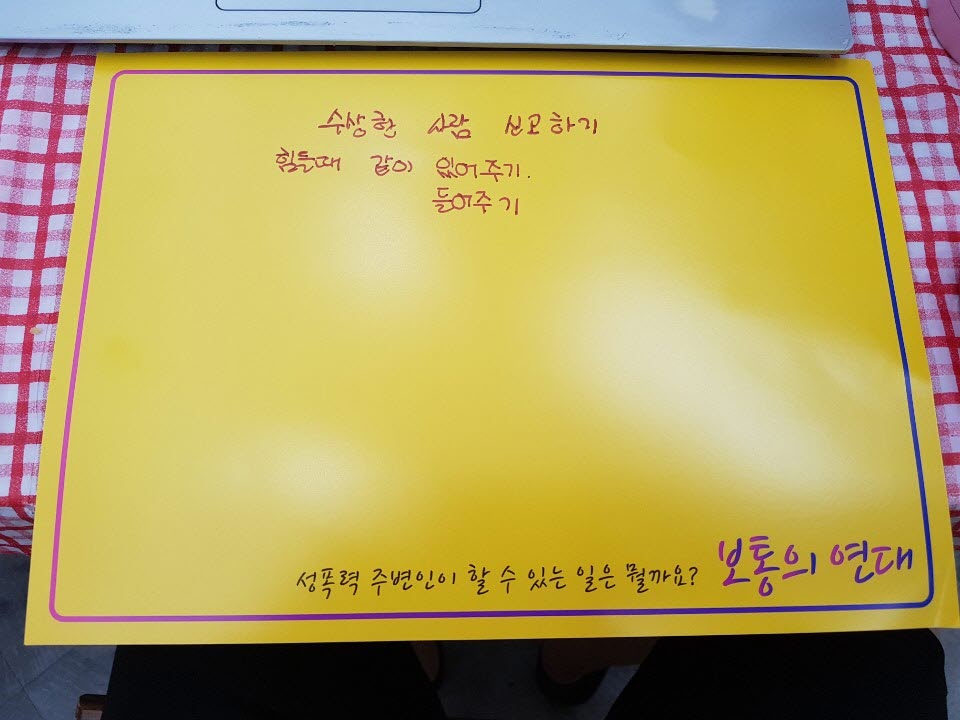 수상한 사람 신고하기
힘들때 같이 있어주기.
들어주기
성폭력 주변인이 할 수 있는 일은 뭘까요?
보통의 연대